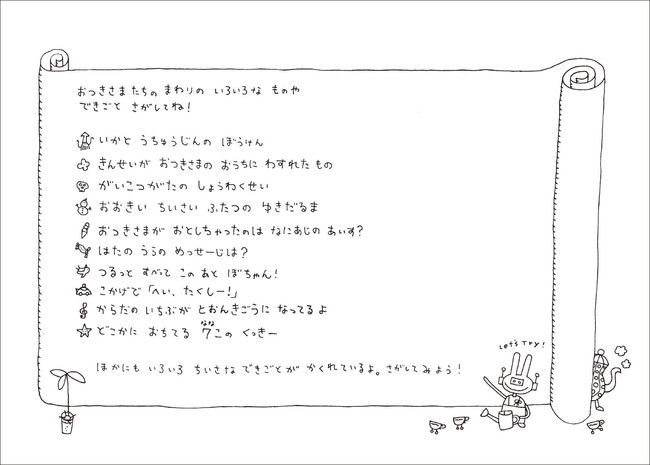 おつきさまたちの まわりの いろいろな ものや
できごと さがしてね!
いかと うちゅうじんの ぼうけん
きんせいが おつきさまの おうちに わすれた もの
がいこつがたの しょうわくせい
おおきい ちいさい ふたつの ゆきだるま
おつきさまが おとしちゃったのは なにあじの あいす?
はたの うらの めっせーじは?
つるっと すべて この あと ぼちゃん!
こかげで「へい、たくしー!」
からだの いちぶが とおんきごうに なってるよ
どこかに おちてる 7この くっきー
なな
ほかにも いろいろ ちいさな できごとが かくれているよ。さがしてみよう!
Let's Try!